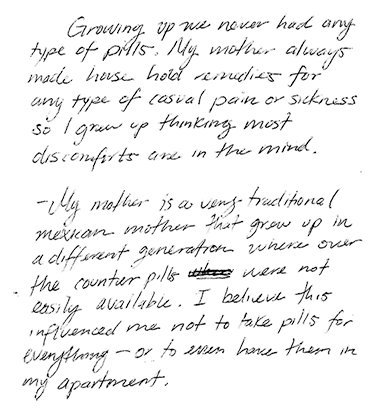 Growing up we never had any
type of pills. My mother always
made house hold remedies for
any type of casual pain or sickness
so I grew up thinking most
discomforts are in the mind.
-My mother is a very traditional
mexican mother that grew up in
a different generation where over
the counter pills were not
easily available. I believe this
influenced me not to take pills for
everything - or to even have them in
my apartment.